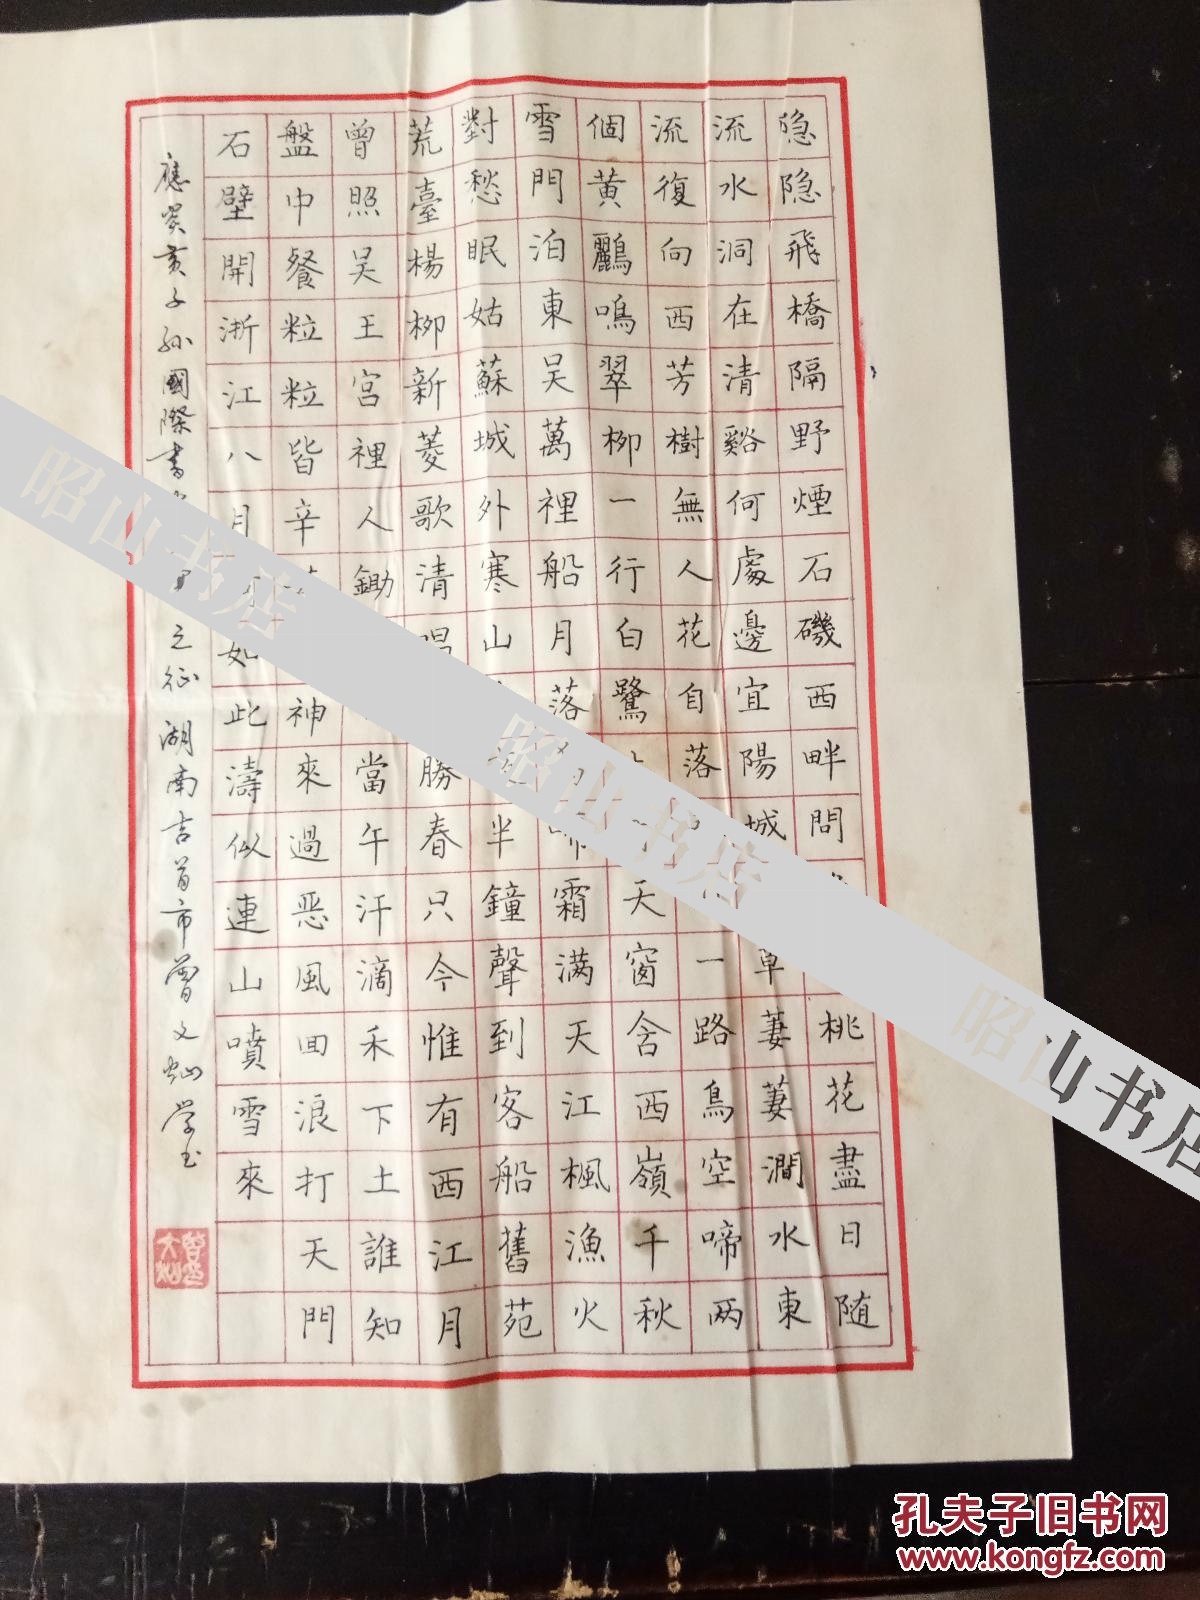 隐隐飛橋隔野煙石磯西畔問桃花盡日随
流水洞在清谿何處邊宜陽城草萋萋澗水東
流復向西芳樹無人花自落一路鳥空啼两
個黄鸝鳴翠柳一行白鷺天窗含西嶺千秋
雪門泊東吴萬裡船月落啼霜满天江楓漁火
對愁眠姑蘇城外寒山半鐘聲到客船舊苑
荒臺楊柳新菱歌清唱勝春只今惟有西江月
曾照吴王宫裡人鋤當午汗滴禾下土誰知
盤中餐粒粒皆辛神來過恶風回浪打天門
石壁開浙江八月如此濤似連山噴雪來
應炎黄子孫國際書之征湖南吉首市曾文灿學书
昭山书店
昭山书店
昭山书店
孔夫子旧书网
www.kongfz.com